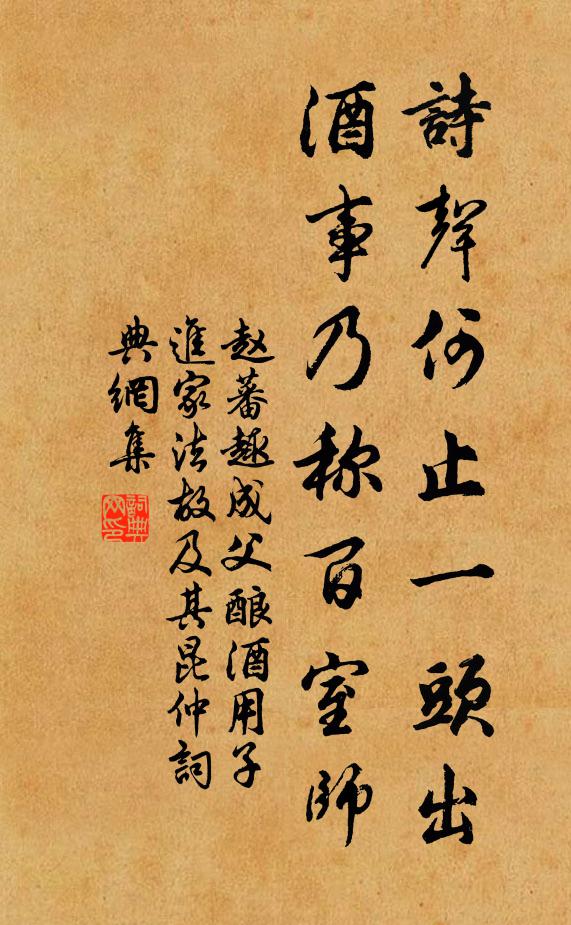 詩聲何止一頭出
酒事乃称百室師
赵蕃趣成父酿酒用子
進家法故及其昆仲詞
典網集
詞典网印